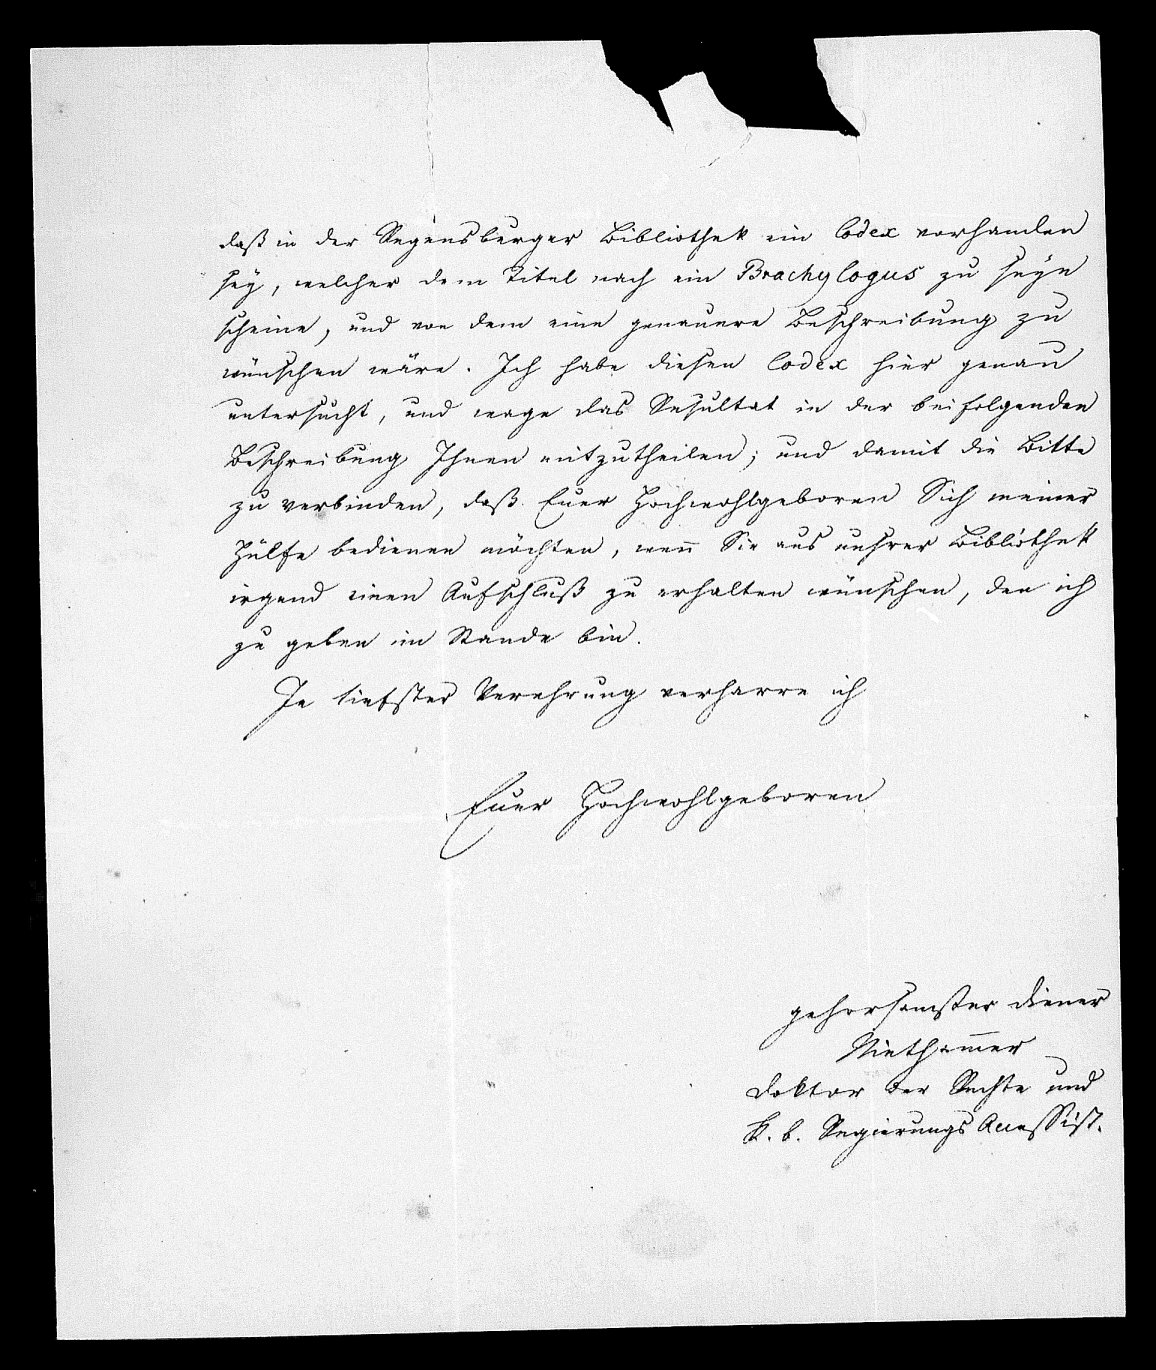 daß in der Regensburger Bibliothek ein Codex vorhanden
sey, welcher dem Titel nach ein Brachylogus zu seyn
scheine, und von dem eine genauere Beschreibung zu
wünschen wäre. Ich habe diesen Codex hier genau
untersucht, und wage das Resultat in der beifolgenden
Beschreibung Ihnen mitzutheilen; und damit die Bitte
zu verbinden, daß Euer Hochwohlgeboren Sich meiner
Hülfe bedienen möchten, wen̄ Sie aus unsrer Bibliothek
irgend einen Aufschluß zu erhalten wünschen, den ich
zu geben im Stande bin.
In tiefster Verehrung verharre ich
Euer Hochwohlgeboren
gehorsamster Diener
Nietham̄er
Doktor der Rechte und
k. b. Regierungs Accessist.